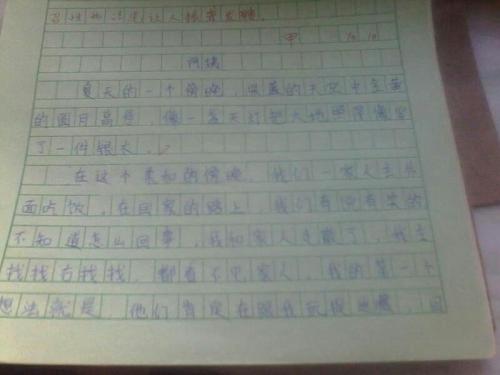 甲 10 10
夏天的一个傍晚,蔚蓝的天空中金黄
的圆月高悬,像一盏天灯把大地照得像穿
了一件银衣。
在这个美如的傍晚,我们一家人去外
面吃饭,在回家的路上,我们有说有笑的
不知道怎么回事,我和家人走散了,我左
找找右找找,都看不见家人,我的第一个
想法就是,他们肯定在跟我玩捉迷藏,回